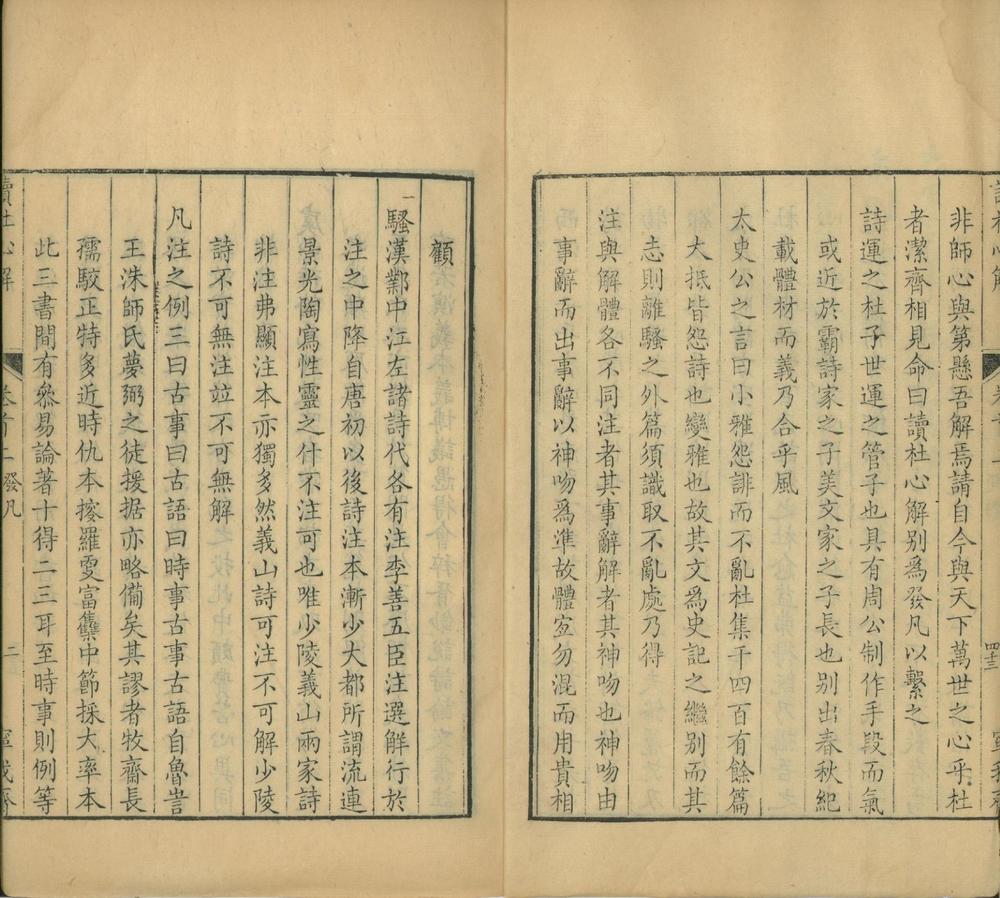 非師心與第懸吾解焉請自今與天下萬世之心乎杜
者潔齊相見命曰讀杜心解別爲發凡以繫之
詩運之杜子世運之管子也具有周公制作手段而氣
或近於霸詩家之子美文家之子長也別出春秋紀
載體材而義乃合乎風
太史公之言曰小雅怨誹而不亂杜集千四百有餘篇
大抵皆怨詩也變雅也故其文爲史記之繼別而其
志則離騷之外篇須識取不亂處乃得
注與解體各不同注者其事辭解者其神吻也神吻由
事辭而出事辭以神吻爲準故體宐勿混而用貴相
顧
一騷漢鄴中江左諸詩代各有注李善五臣注選解行於
注之中降自唐初以後詩注本漸少大都所謂流連
景光陶寫性靈之什不注可也唯少陵義山兩家詩
非注弗顯注本亦獨多然義山詩可注不可解少陵
詩不可無注竝不可無解
凡注之例三曰古事曰古語曰時事古事古語自魯訔
王洙師氏夢弼之徒援据亦略備矣其謬者牧齋長
孺駮正特多近時仇本摉羅雯富集中節採大率本
此三書間有叅易論著十得二三耳至時事則例等
讀杜心解
卷首二發凡
二